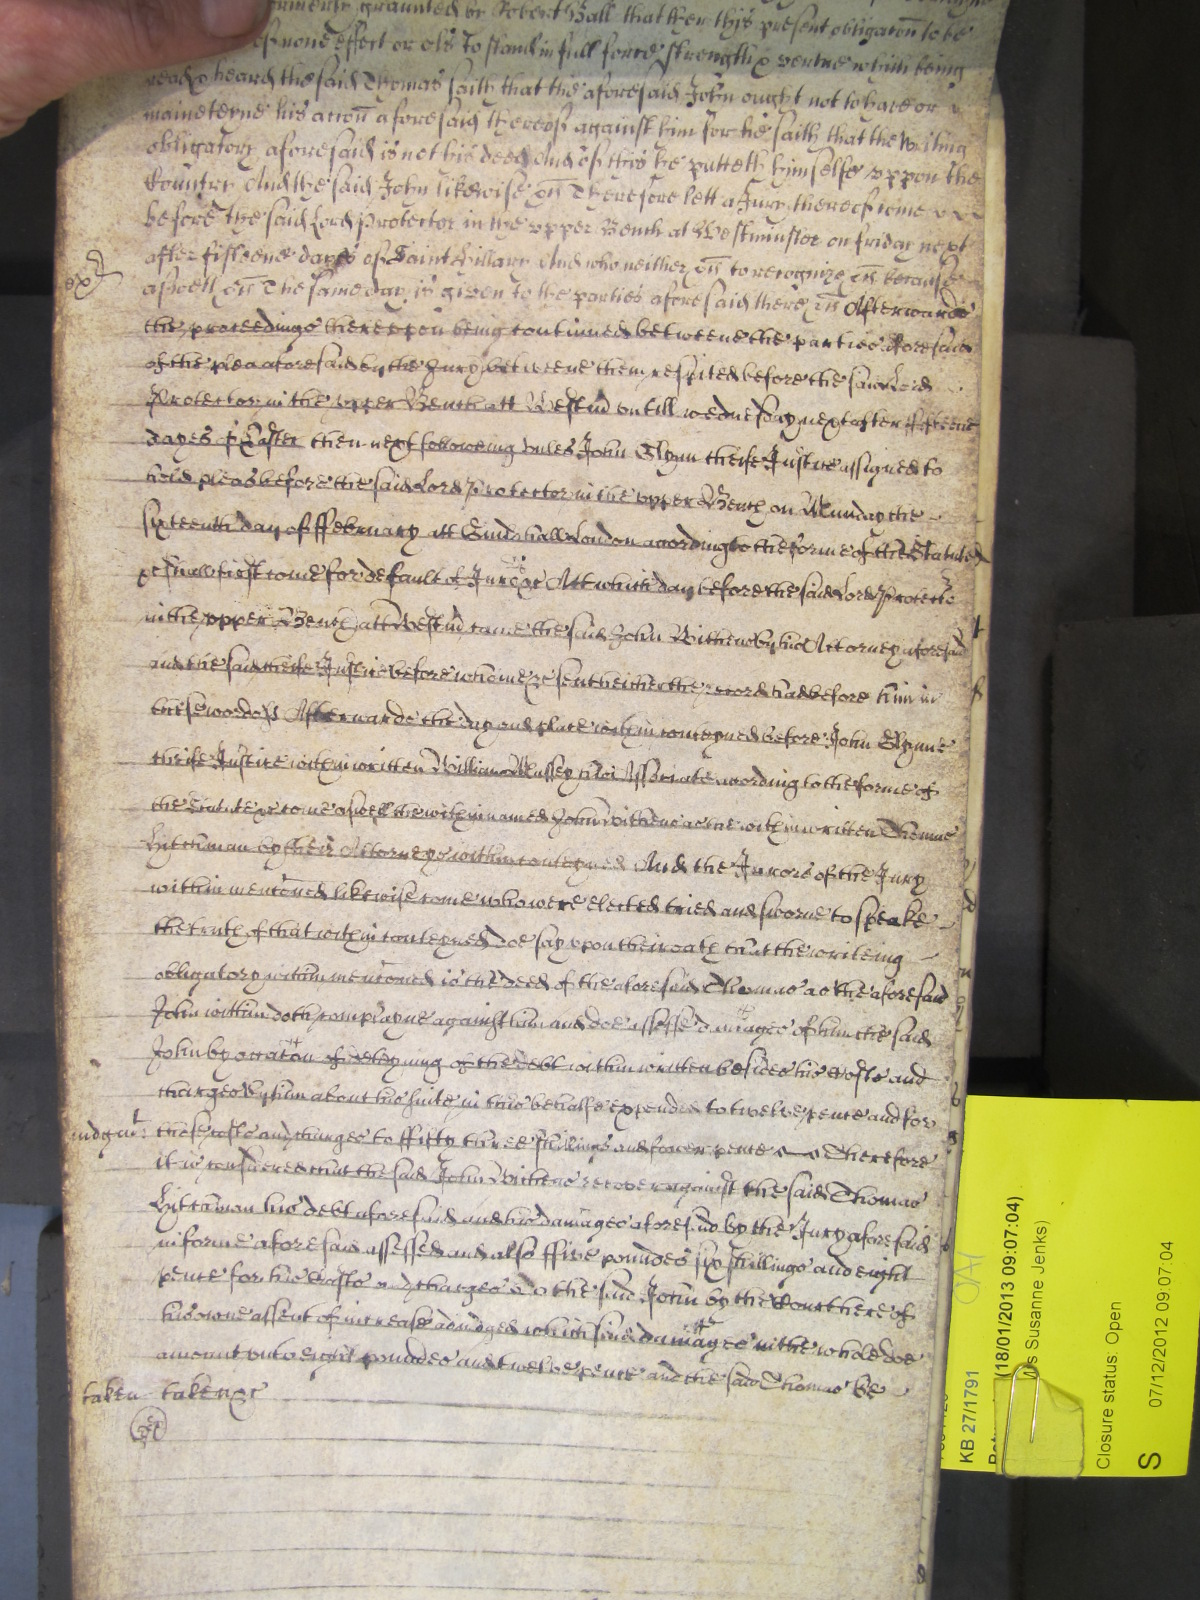 graunted by Robert Hall that then this present obligacon to be
of none effect or els to stand in full force strength & vertue which being
read & heard the said Thomas saith that the aforesaid John ought not to have or
mainteyne his accon aforesaid thereof against him for he saith that the writing
obligatory aforesaid is not his deed And of this he putteth himselfe uppon the
Country And the said John likewise &c Therefore lett a Jury thereof come
before the said Lord Protector in the upper Bench at Westminster on friday next
after fifteene dayes of Saint Hillary And who neither &c to recognize &c because
aswell &c The same day is given to the parties aforesaid there &c Afterwards
the proceedings thereupon being continued betweene the parties aforesaid
of the plea aforesaid by the Jury betweene them respited before the said Lord
Protector in the upper Bench att Westm untill wednesday next after fifteene
dayes of Easter then next following unles John Glynn cheife Justice assigned to
hold pleas before the said Lord Protector in the upper Bench on Munday the
sixteenth day of ffebruary att Guildhall London according to the forme of the Statute
&c shall first come for default of Jurors &c Att which day before the said Lord Protector
in the upper Bench att Westm came the said John Withens by his Attorney aforesaid
and the said cheife Justice before whome &c sent hither the record had before him in
these words ss Afterwards the day and place within conteyned before John Glynne
cheife Justice within written William Massey his Associate according to the forme of
the Statute &c come aswell the within named John Withens as the within written Thomas
by their Attorneys within conteyned And the Jurors of the Jury
within mencioned likewise come who were elected tried and sworne to speake
the truth of that within conteyned doe say upon their oath that the writeing
obligatory within mencioned is the deed of the aforesaid Thomas as the aforesaid
John within doth complayne against him and doe assesse damages of him the said
John by occation of deteyning of the debt within written besides his Costs and
charges by him about his suite in this behalfe expended to twelve pence and for
Judgmt: those costs and charges to ffifty three shillings and fower pence Therefore
it is considered that the said John Withens recover against the said Thomas
his debt aforesaid and his damages aforesaid by the Jury aforesaid
in forme aforesaid assessed and also ffive poundes six shillings and eight
pence for his Costs and charges to the said John by the Court here of
his owne assent of increase adiudged which said damages in the whole doe
amount unto eight poundes and twelve pence and the said Thomas be
taken taken &c
KB 27/1791
(18/01/2013 09:07:04)
Ms Susanne Jenks)
Closure status: Open
S 07/12/2012 09:07:04